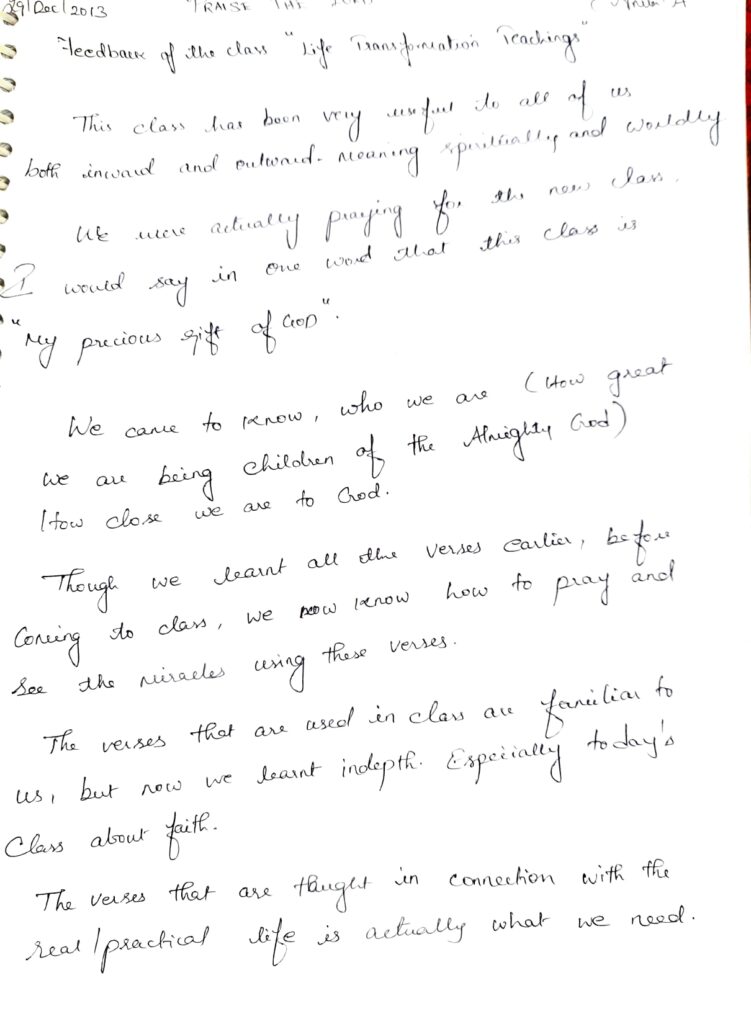 29/Dec/2013 PRAISE THE
Feedback of the class "Life Transformation Teachings"
This class has been very useful to all of us
both inward and outward. meaning spiritually and worldly
We were actually praying for the new class.
I would say in one word that this class is
"My precious gift of GOD".
We came to know, who we are (How great
we are being children of the Almighty God)
How close we are to God.
Though we learnt all the verses earlier, before
Coming to class, we now know how to pray and
See the miracles using these verses.
The verses that are used in class are familiar to
us, but now we learnt indepth. Especially today's
Class about faith.
The verses that are thaught in connection with the
real/practical life is actually what we need.